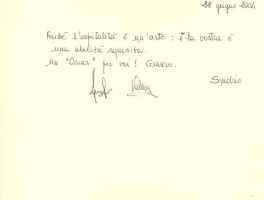 28 giugno 2006
Perché l'ospitalità è un'arte: e la vostra è
una abilità squisita.
Un "Oscar" per voi! Grazie.